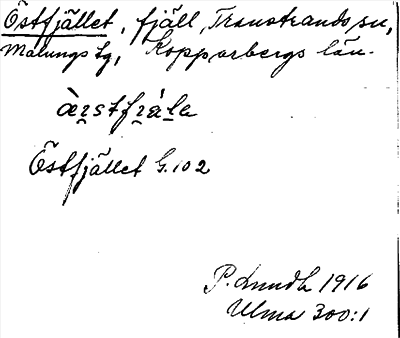 Östfjället, fjäll, Transtrands sn,
Malungs tg, Kopparbergs län.
Östfjället G. 102
P. Lundh 1916
Ulma 300:1